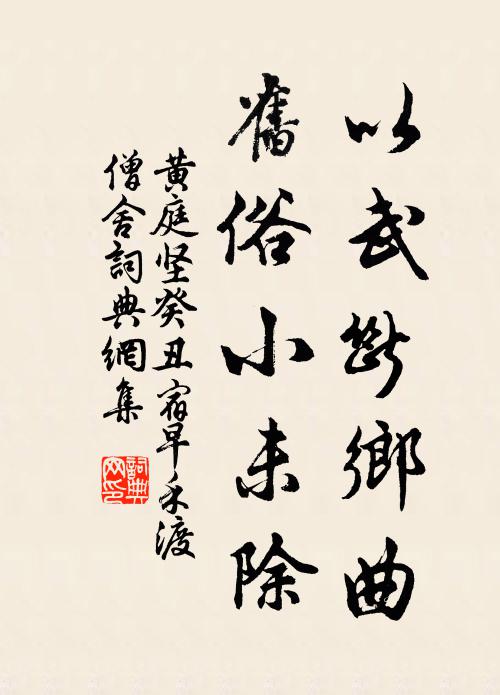 以武斷鄉曲
舊俗小未除
黄庭坚癸丑宿早禾渡
僧舍詞典網集
詞典网印